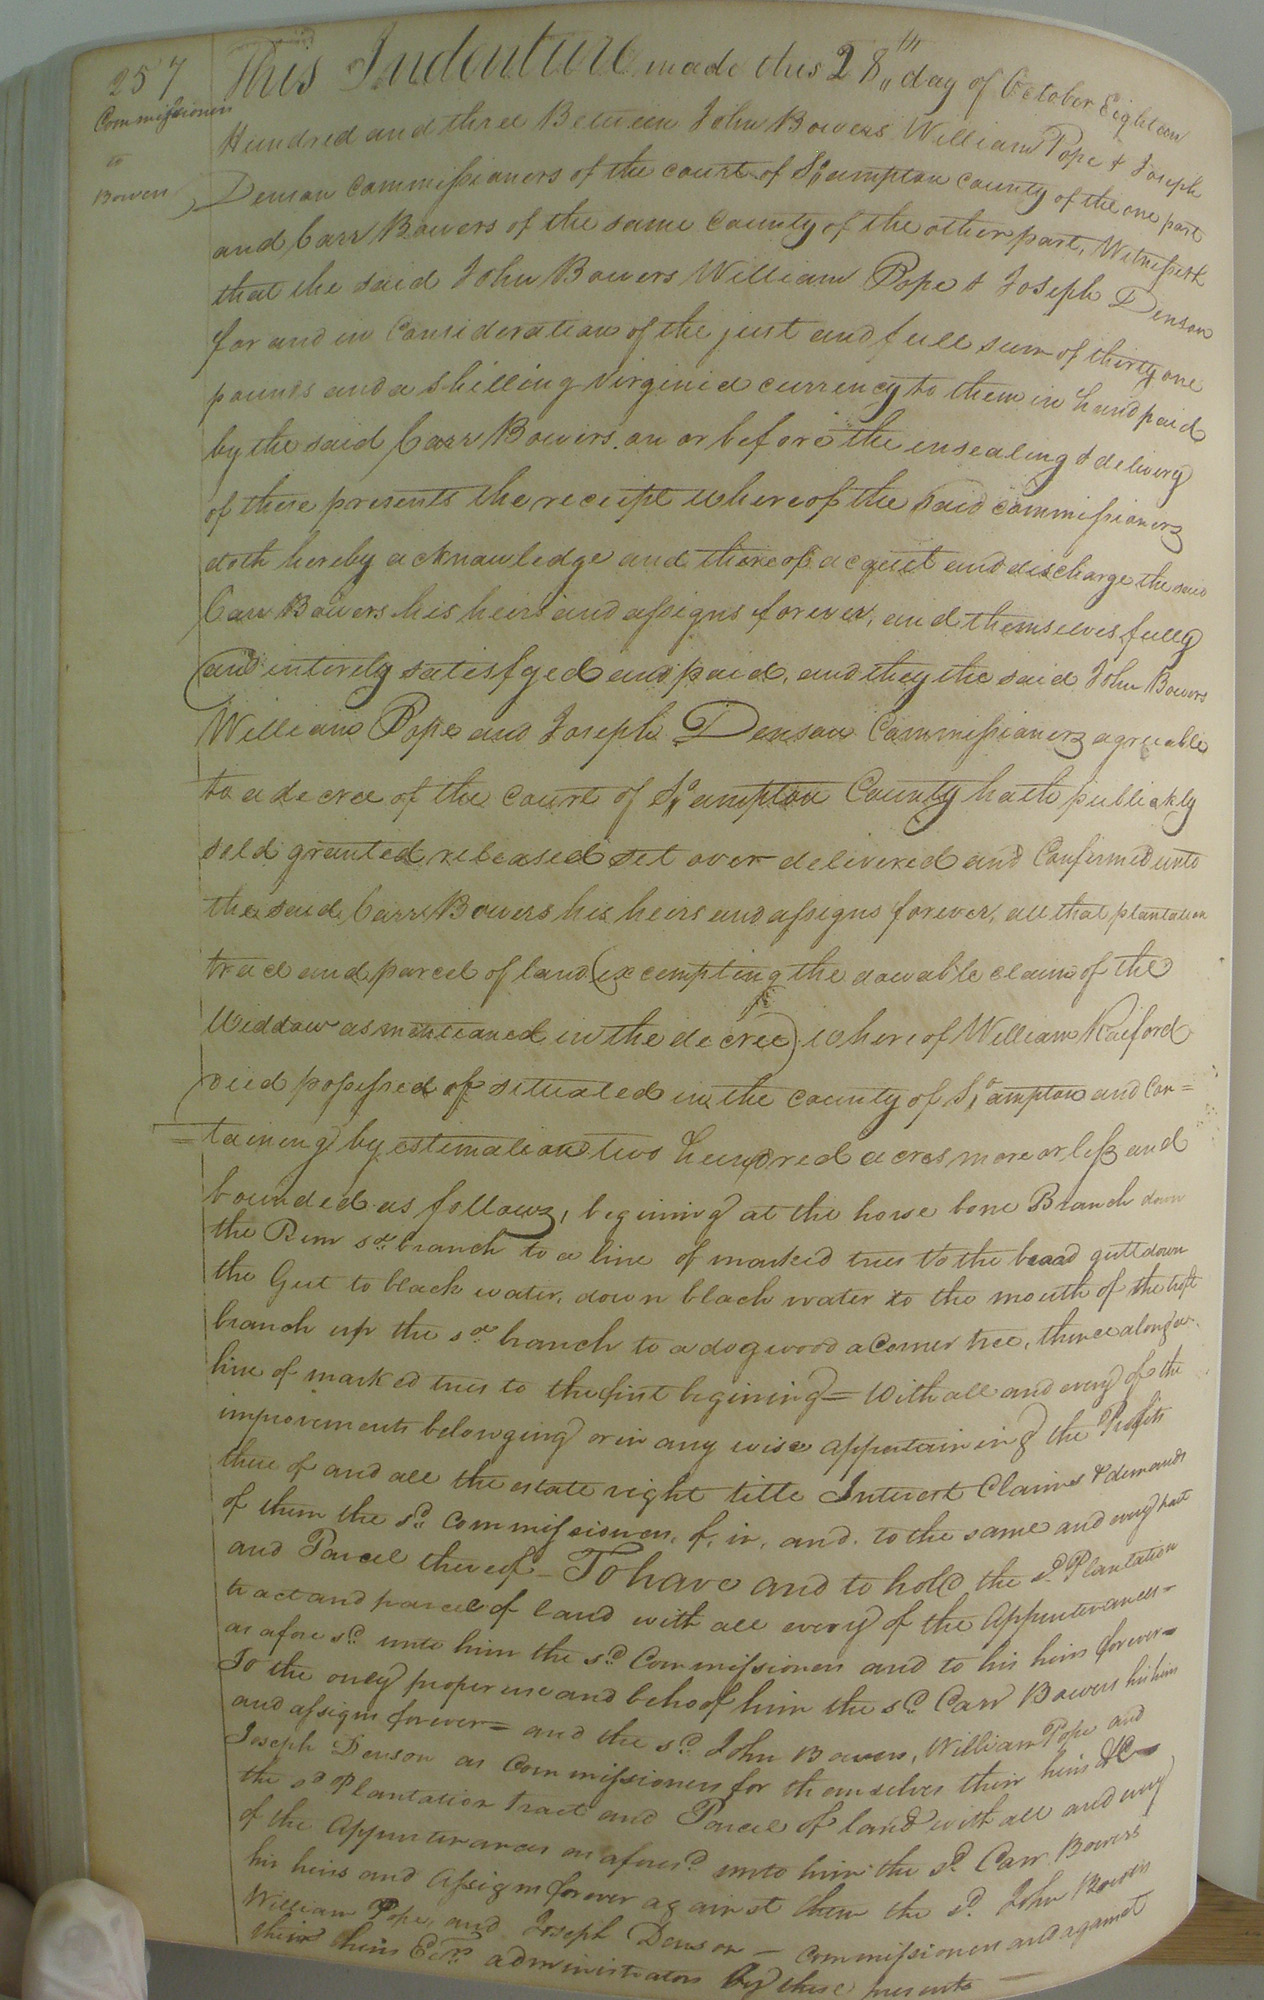 257
Commissioners
to
Bowers
This Indenture made this 28th day of October Eighteen
Hundred and three Between John Bowers William Pope & Joseph
Denson Commissioners of the court of So,,ampton county of the one part
and Carr Bowers of the same County of the other part, Witnesseth
that the said John Bowers William Pope & Joseph Denson
for and in Consideration of the just and full sum of thirty one
pounds and a shilling Virginia currency to them in hand paid
by the said Carr Bowers, on or before the ensealing & delivery
of these presents the receipt whereof the said commissioners
doth hereby acknowledge and thereof acquit and discharge the said
Carr Bowers his heirs and assigns forever, and themselves fully
and intirely satisfyed and paid, and they the said John Bowers
William Pope and Joseph Denson Commissioners agreeable
to a decree of the Court of So,,ampton County hath publickly
sold granted released set over delivered and Confirmed unto
the said Carr Bowers his heirs and assigns forever, all that plantation
tract and parcel of land (excempting the dowable claim of the
Widdow as mentioned in the decree) whereof William Raiford
died possessed of situated in the county of So,,ampton and Con=
=taining by estimation two hundred acres more or less and
bounded as follows, begining at the horse bone Branch down
the Run sd. branch to a line of marked trees to the broad gutt down
the Gut to black water, down black water to the mouth of the
branch up the sd. branch to a dogwood a Corner tree, thence along a
line of marked trees to the first begining = With all and every of the
improvements belonging or in any wise appertaining the Profits
there of and all the estate right title Interest Claims & demands
of them the sd. Commissioners, of, in, and. to the same and every part
and Parcel thereof - To have and to hold the sd. Plantation
tract and parcel of land with all every of the Appurtenances =
as afore sd. unto him the sd. Commissioners and to his heirs forever =
To the only proper use and behoof him the sd. Carr Bowers his heirs
and assigns forever = and the sd. John Bowers, William Pope and
Joseph Denson as Commissioners for themselves their heirs &c
the sd. Plantation tract and Parcel of land with all and every
of the Appurtenances as aforesd. unto him the sd. Carr Bowers
his heirs and Assigns forever against them the sd. John Bowers
William Pope, and Joseph Denson - Commissioners and against
their heirs Exrs. administrators by these presents -